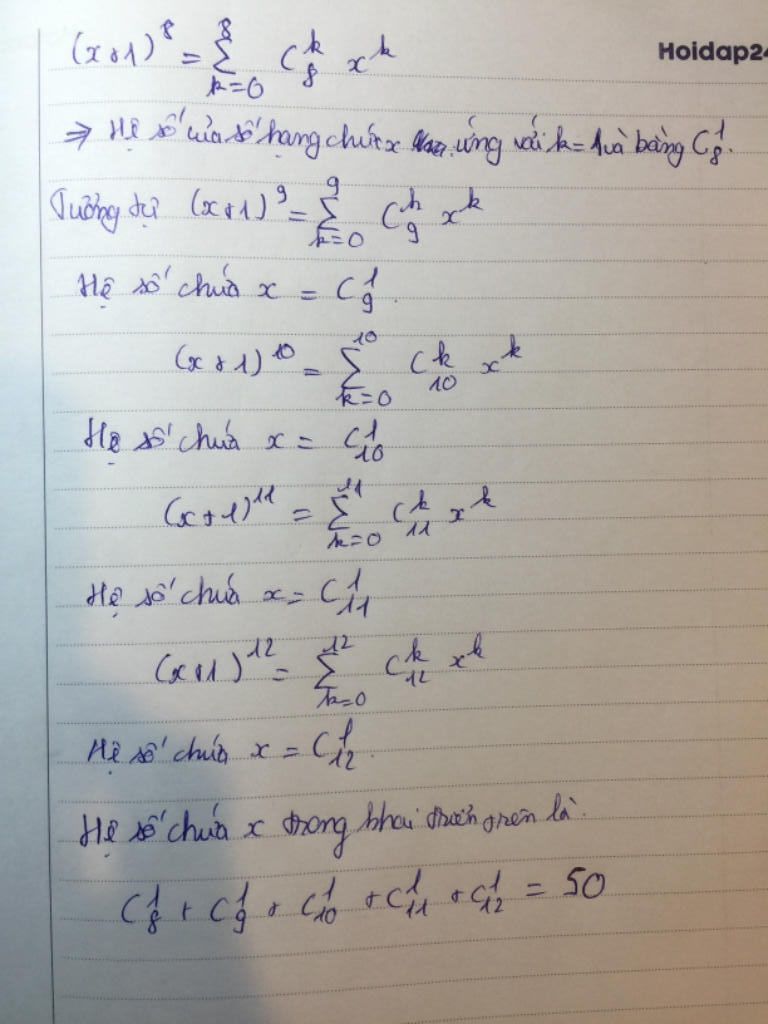 Hoidap24
(x+1)^8 = \sum_{k=0}^{8} C_8^k x^k
⇒ Hệ số của số hạng chứa x ứng với k=1 và bằng C_8^1.
Tương tự (x+1)^9 = \sum_{k=0}^{9} C_9^k x^k
Hệ số chứa x = C_9^1.
(x+1)^{10} = \sum_{k=0}^{10} C_{10}^k x^k
Hệ số chứa x = C_{10}^1
(x+1)^{11} = \sum_{k=0}^{11} C_{11}^k x^k
Hệ số chứa x = C_{11}^1
(x+1)^{12} = \sum_{k=0}^{12} C_{12}^k x^k
Hệ số chứa x = C_{12}^1.
Hệ số chứa x trong khai triển trên là.
C_8^1 + C_9^1 + C_{10}^1 + C_{11}^1 + C_{12}^1 = 50